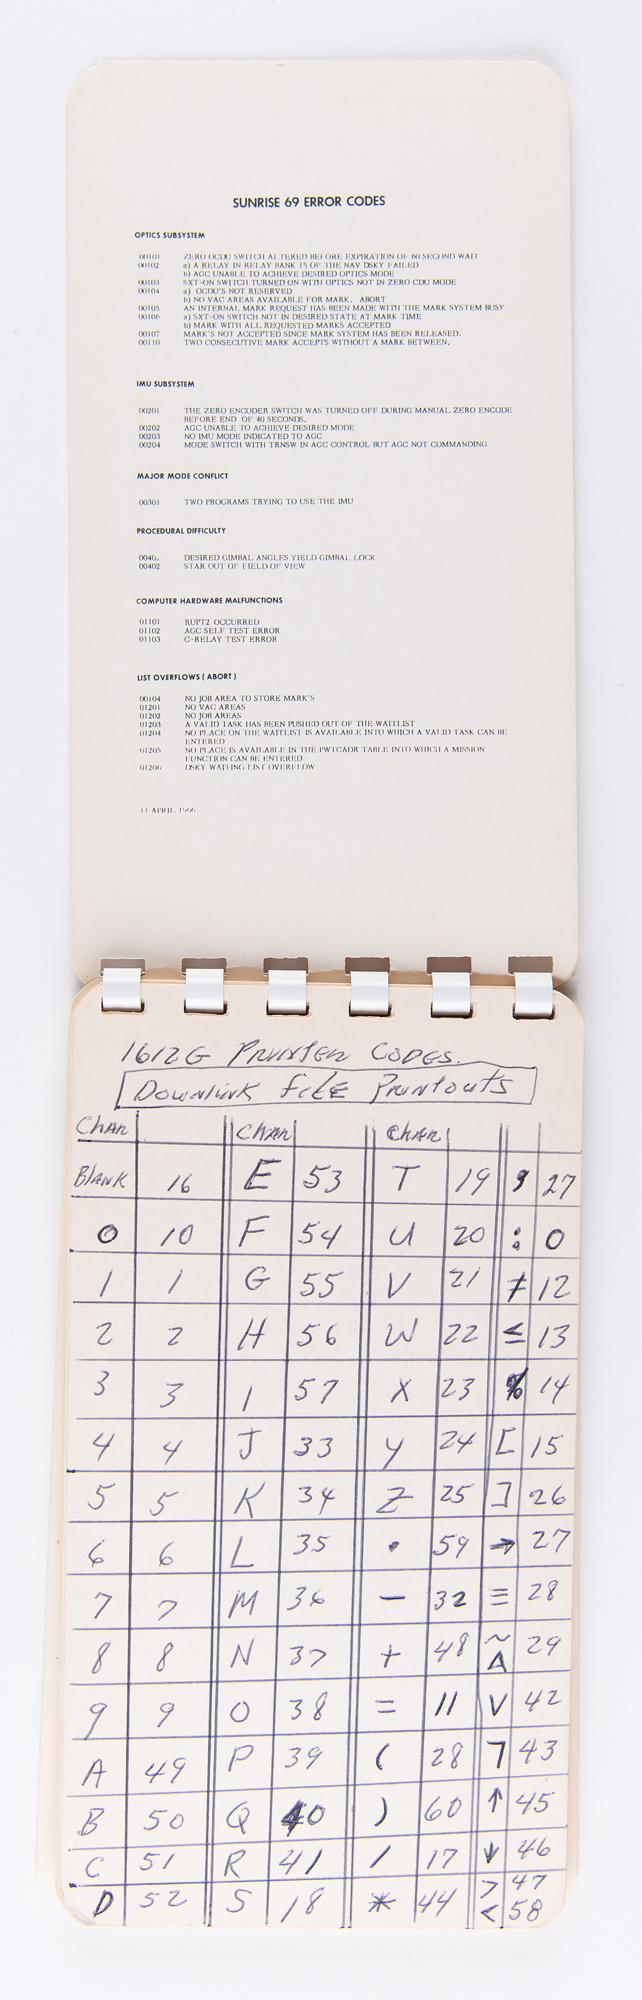 SUNRISE 69 ERROR CODES
OPTICS SUBSYSTEM
00101 ZERO OCDU SWITCH ALTERED BEFORE EXPIRATION OF 60 SECOND WAIT
00102 a) A RELAY IN RELAY BANK 15 OF THE NAV DSKY FAILED
b) AGC UNABLE TO ACHIEVE DESIRED OPTICS MODE
00103 SXT-ON SWITCH TURNED ON WITH OPTICS NOT IN ZERO CDU MODE
00104 a) OCDU'S NOT RESERVED
b) NO VAC AREAS AVAILABLE FOR MARK, ABORT
00105 AN INTERNAL MARK REQUEST HAS BEEN MADE WITH THE MARK SYSTEM BUSY
00106 a) SXT-ON SWITCH NOT IN DESIRED STATE AT MARK TIME
b) MARK WITH ALL REQUESTED MARKS ACCEPTED
00107 MARK'S NOT ACCEPTED SINCE MARK SYSTEM HAS BEEN RELEASED.
00110 TWO CONSECUTIVE MARK ACCEPTS WITHOUT A MARK BETWEEN.
IMU SUBSYSTEM
00201 THE ZERO ENCODER SWITCH WAS TURNED OFF DURING MANUAL ZERO ENCODE
BEFORE END OF 40 SECONDS.
00202 AGC UNABLE TO ACHIEVE DESIRED MODE
00203 NO IMU MODE INDICATED TO AGC
00204 MODE SWITCH WITH TRNSW IN AGC CONTROL BUT AGC NOT COMMANDING
MAJOR MODE CONFLICT
00301 TWO PROGRAMS TRYING TO USE THE IMU
PROCEDURAL DIFFICULTY
DESIRED GIMBAL ANGLES YIELD GIMBAL LOCK
00402 STAR OUT OF FIELD OF VIEW
COMPUTER HARDWARE MALFUNCTIONS
01101 RUPT2 OCCURRED
01102 AGC SELF TEST ERROR
01103 C-RELAY TEST ERROR
LIST OVERFLOWS ( ABORT )
00104 NO JOB AREA TO STORE MARK'S
01201 NO VAC AREAS
01202 NO JOB AREAS
01203 A VALID TASK HAS BEEN PUSHED OUT OF THE WAITLIST
01204 NO PLACE ON THE WAITLIST IS AVAILABLE INTO WHICH A VALID TASK CAN BE
ENTERED
01205 NO PLACE IS AVAILABLE IN THE PWTCADR TABLE INTO WHICH A MISSION
FUNCTION CAN BE ENTERED
01206 DSKY WAITING LIST OVERFLOW
11 APRIL 1966
1612G PRINTER CODES.
DOWNLINK FILE PRINTOUTS
CHAR CHAR CHAR
BLANK 16 E 53 T 19 , 27
0 10 F 54 U 20 : 0
1 1 G 55 V 21 ≠ 12
2 2 H 56 W 22 ≤ 13
3 3 I 57 X 23 % 14
4 4 J 33 Y 24 [ 15
5 5 K 34 Z 25 ] 26
6 6 L 35 • 59 → 27
7 7 M 36 − 32 ≡ 28
8 8 N 37 + 48 ~ ∧ 29
9 9 O 38 = 11 ∨ 42
A 49 P 39 ( 28 ┐ 43
B 50 Q 40 ) 60 ↑ 45
C 51 R 41 / 17 ↓ 46
D 52 S 18 * 44 > 47
< 58